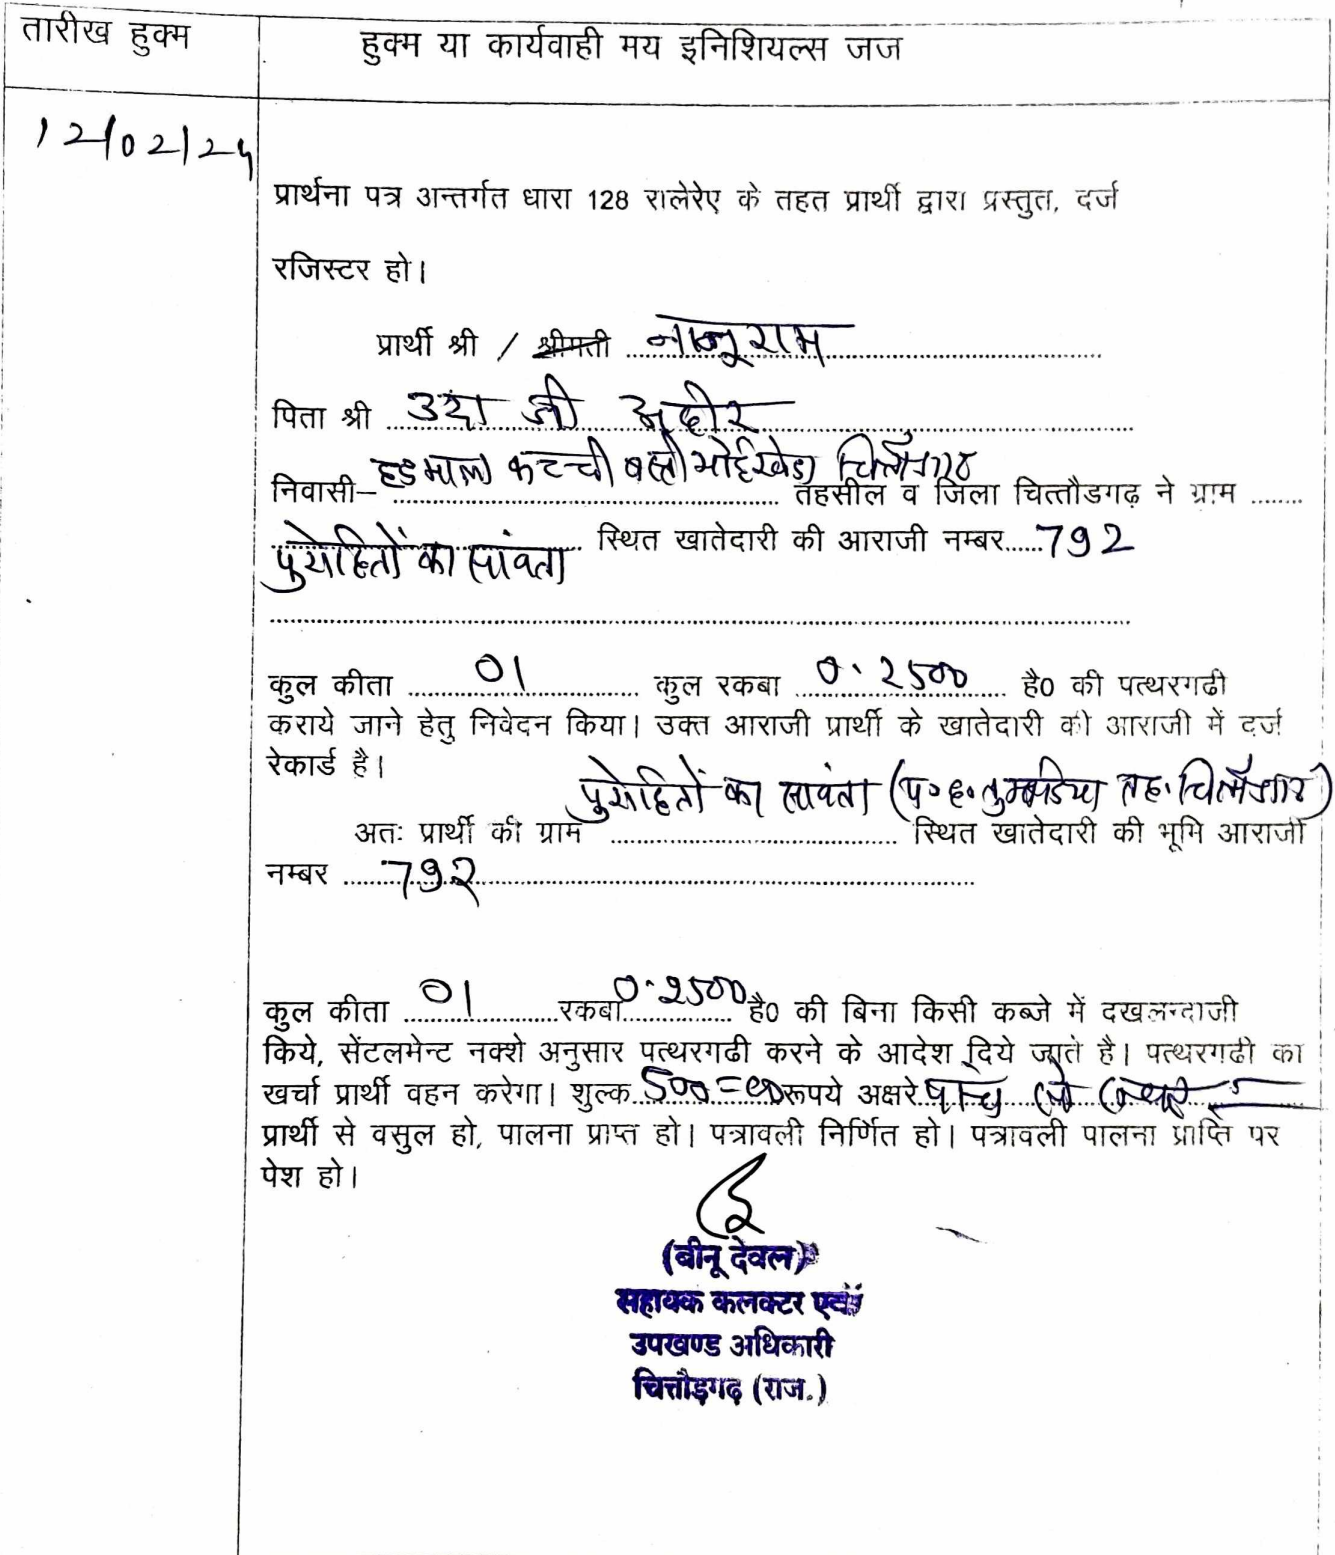 तारीख हुक्म
हुक्म या कार्यवाही मय इनिशियल्स जज
12/02/24
प्रार्थना पत्र अन्तर्गत धारा 128 रालेरेए के तहत प्रार्थी द्वारा प्रस्तुत, दर्ज
रजिस्टर हो।
प्रार्थी श्री / श्रीमती नानूराम
पिता श्री उदा जी अहीर
हडमाला कच्ची बस्ती भोईखेडा चित्तौडगढ
निवासी– तहसील व जिला चित्तौडगढ़ ने ग्राम
पुरोहितों का सांवता स्थित खातेदारी की आराजी नम्बर 792
कुल कीता 01 कुल रकबा 0.2500 है0 की पत्थरगढी
कराये जाने हेतु निवेदन किया। उक्त आराजी प्रार्थी के खातेदारी की आराजी में दर्ज
रेकार्ड है।
पुरोहितों का सांवता (प.ह. तुम्बडिया तह. चित्तौडगढ)
अतः प्रार्थी की ग्राम स्थित खातेदारी की भूमि आराजी
नम्बर 792
कुल कीता 01 रकबा 0.2500 है0 की बिना किसी कब्जे में दखलन्दाजी
किये, सेंटलमेन्ट नक्शे अनुसार पत्थरगढी करने के आदेश दिये जाते है। पत्थरगढी का
खर्चा प्रार्थी वहन करेगा। शुल्क 500=00 रूपये अक्षरे पान्च सो
प्रार्थी से वसुल हो, पालना प्राप्त हो। पत्रावली निर्णित हो। पत्रावली पालना प्राप्ति पर
पेश हो।
(बीनू देवल)
सहायक कलक्टर एवं
उपखण्ड अधिकारी
चित्तौड़गढ़ (राज.)